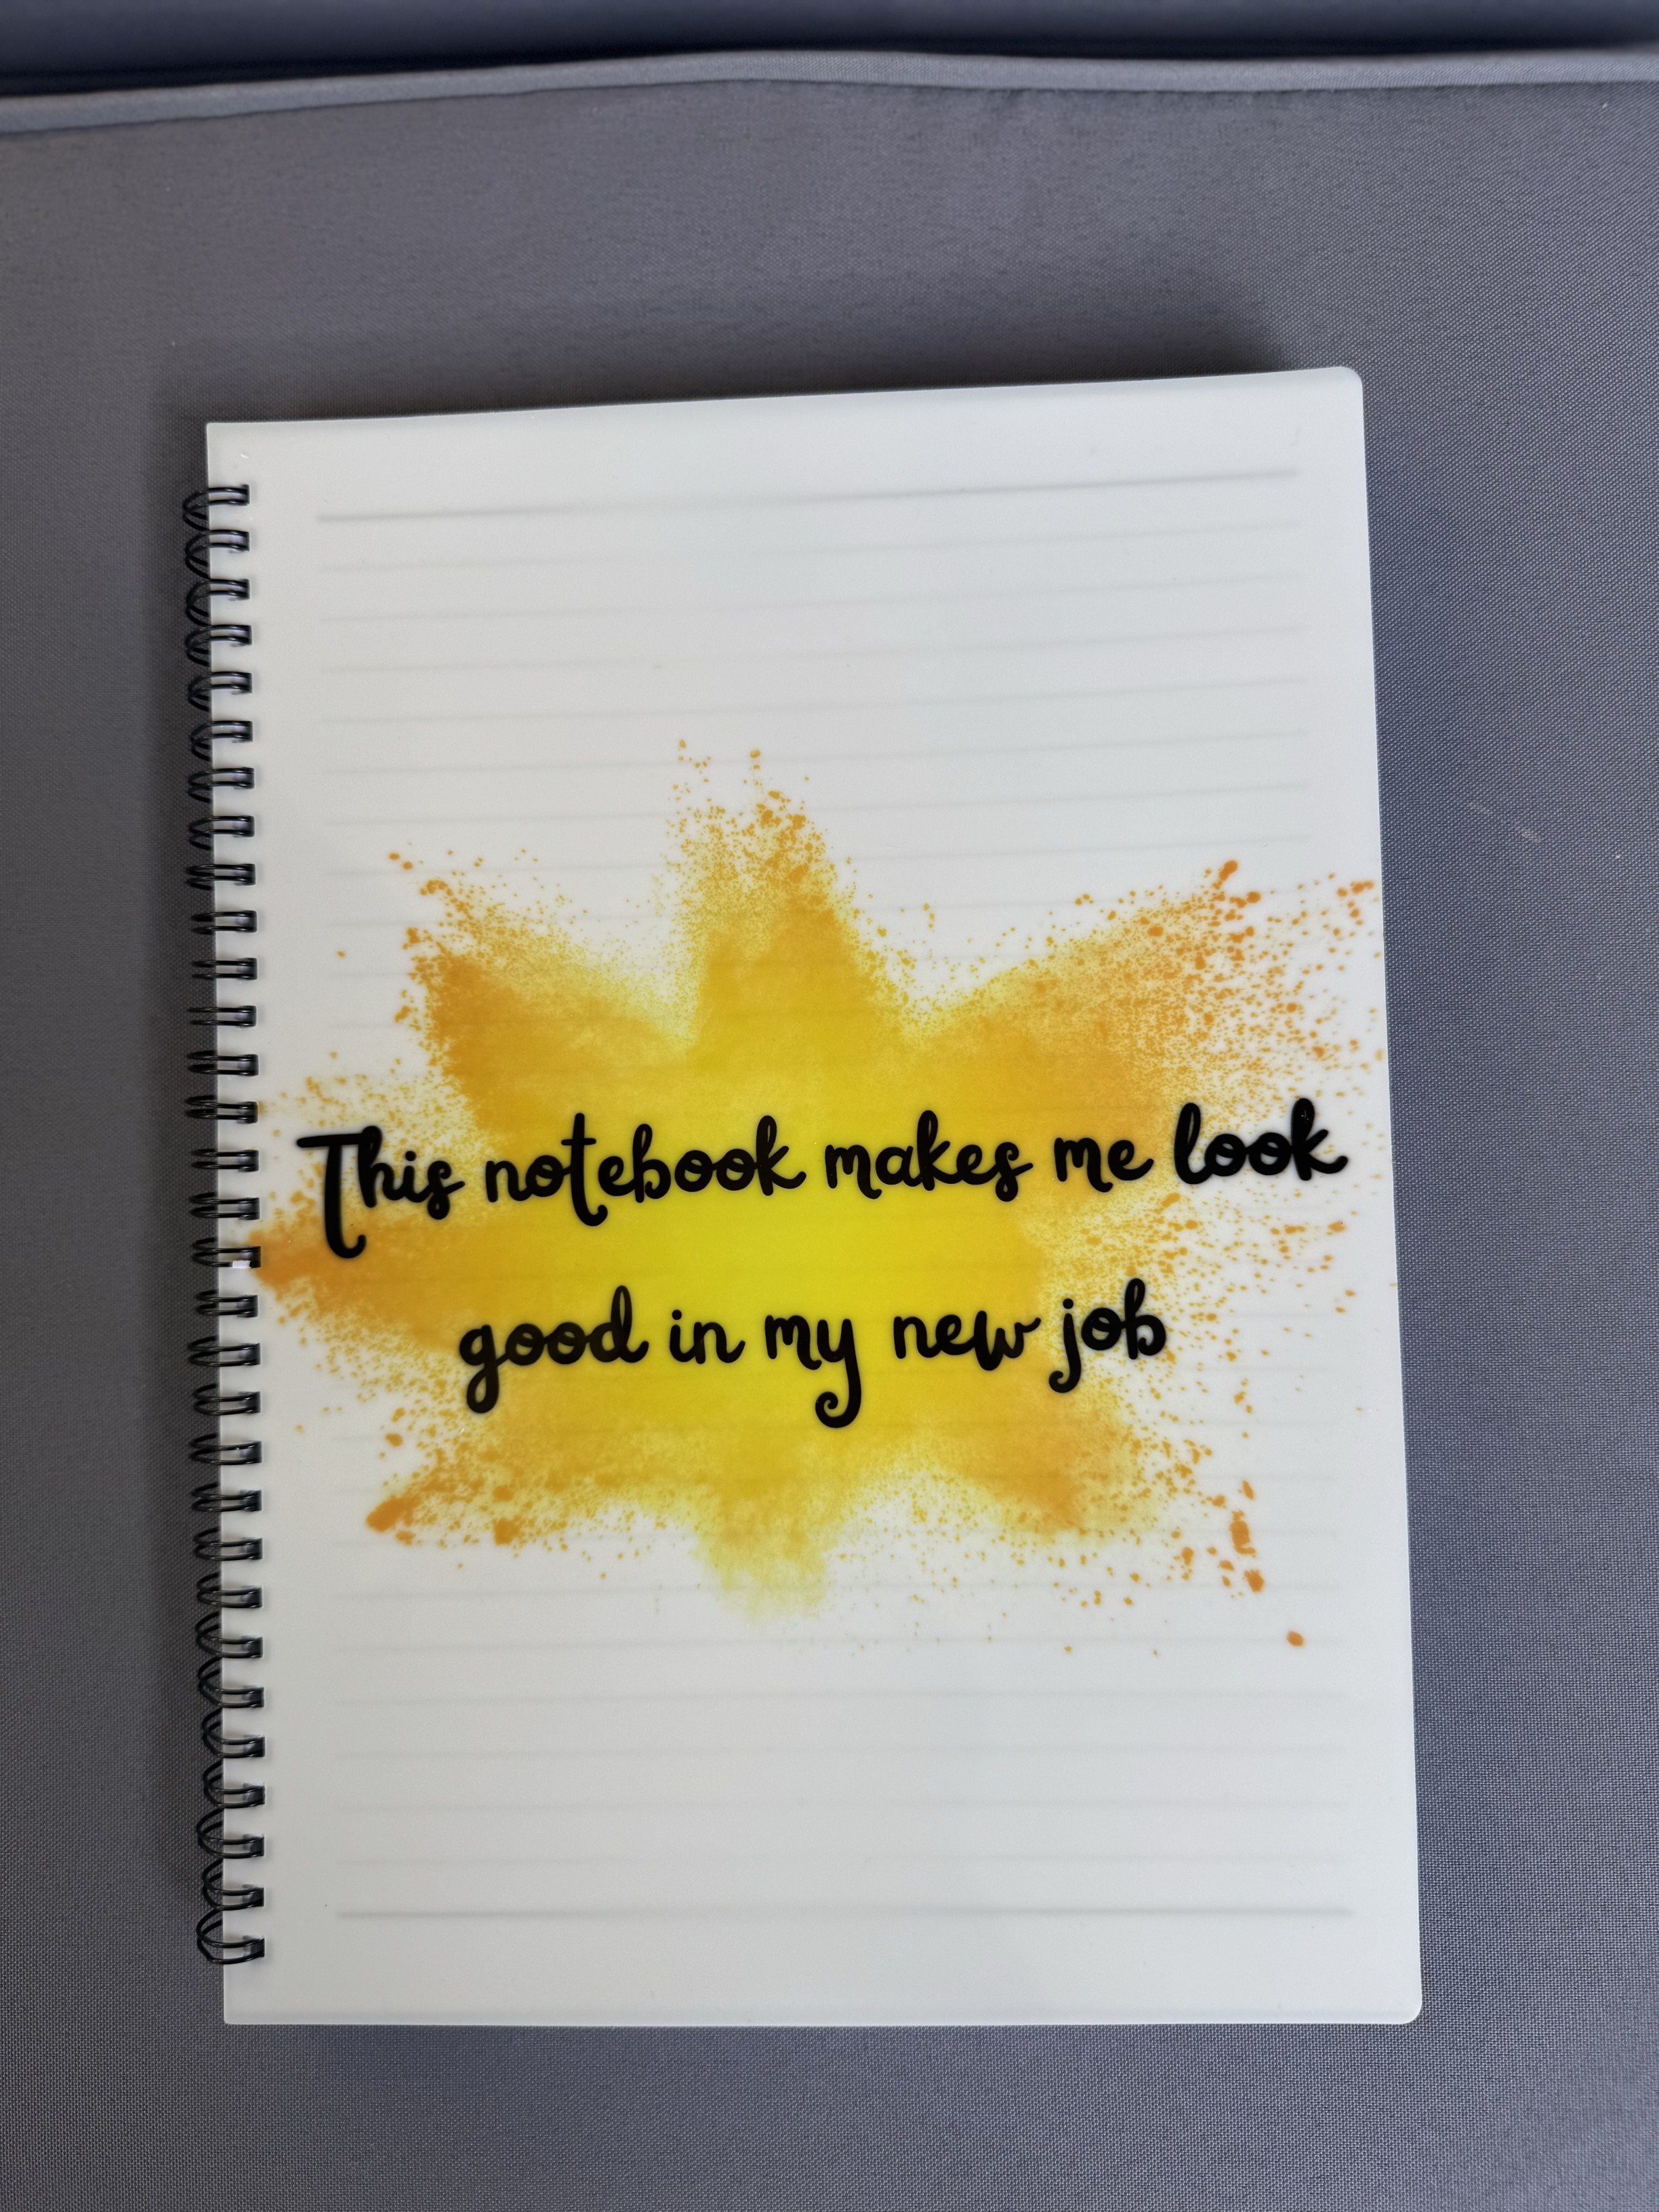 This notebook makes me look
good in my new job